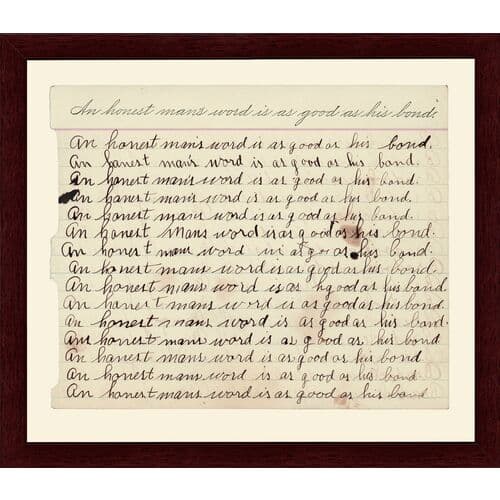 An honest mans word is as good as his bond.
An honest man's word is as good as his bond.
An honest man's word is as good as his bond.
An honest man's word is as good as his bond.
An honest man's word is as good as his bond.
An honest mans word is as good as his bond.
An honest mans word is as good as his bond.
An honest mans word is as goo as his bond.
An honest mans word is as good as his bond.
An honest mans word is as hgood as his bond.
An honest mans word is as good as his bond.
An honest mans word is as good as his bond.
An honest mans word is as good as his bond
An honest mans word is as good as his bond
An honest mans word is as good as his bond
An honest mans word is as good as his bond